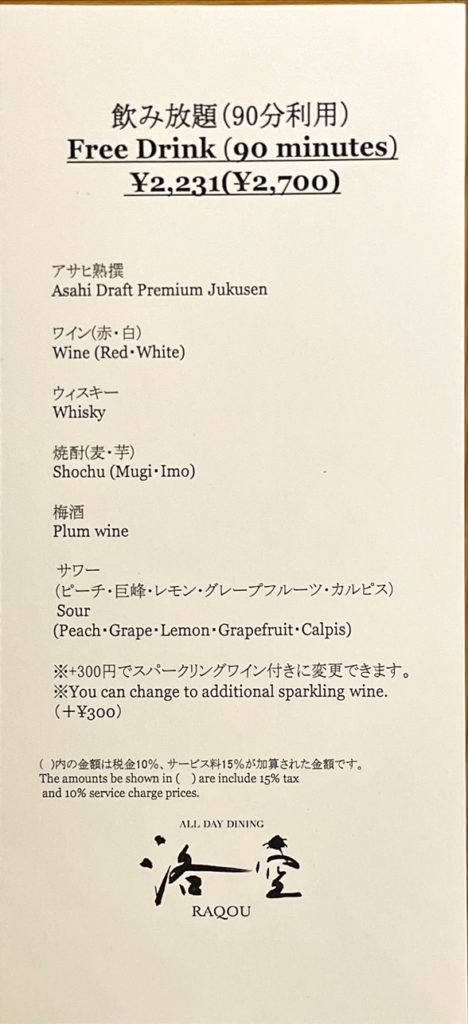 飲み放題(90分利用)
Free Drink (90 minutes)
¥2,231(¥2,700)
アサヒ熟撰
Asahi Draft Premium Jukusen
ワイン(赤・白)
Wine (Red・White)
ウィスキー
Whisky
焼酎(麦・芋)
Shochu (Mugi・Imo)
梅酒
Plum wine
サワー
(ピーチ・巨峰・レモン・グレープフルーツ・カルピス)
Sour
(Peach・Grape・Lemon・Grapefruit・Calpis)
※+300円でスパークリングワイン付きに変更できます。
※You can change to additional sparkling wine.
(＋¥300)
( )内の金額は税金10%、サービス料15%が加算された金額です。
The amounts be shown in ( ) are include 15% tax
and 10% service charge prices.
ALL DAY DINING
洛空
RAQOU